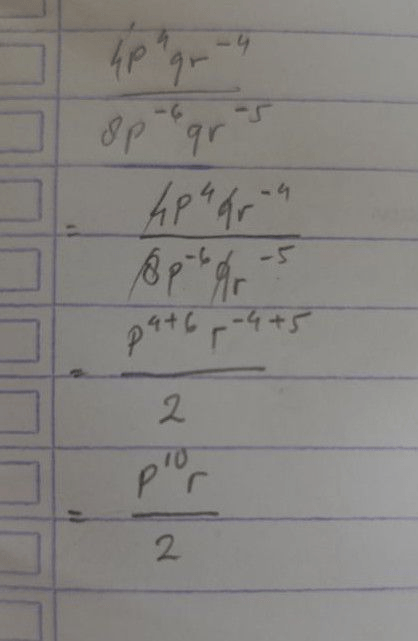 4p⁴qr⁻⁴
8p⁻⁶qr⁻⁵
= 4p⁴qr⁻⁴
8p⁻⁶qr⁻⁵
= p⁴⁺⁶ r⁻⁴⁺⁵
2
= p¹⁰r
2